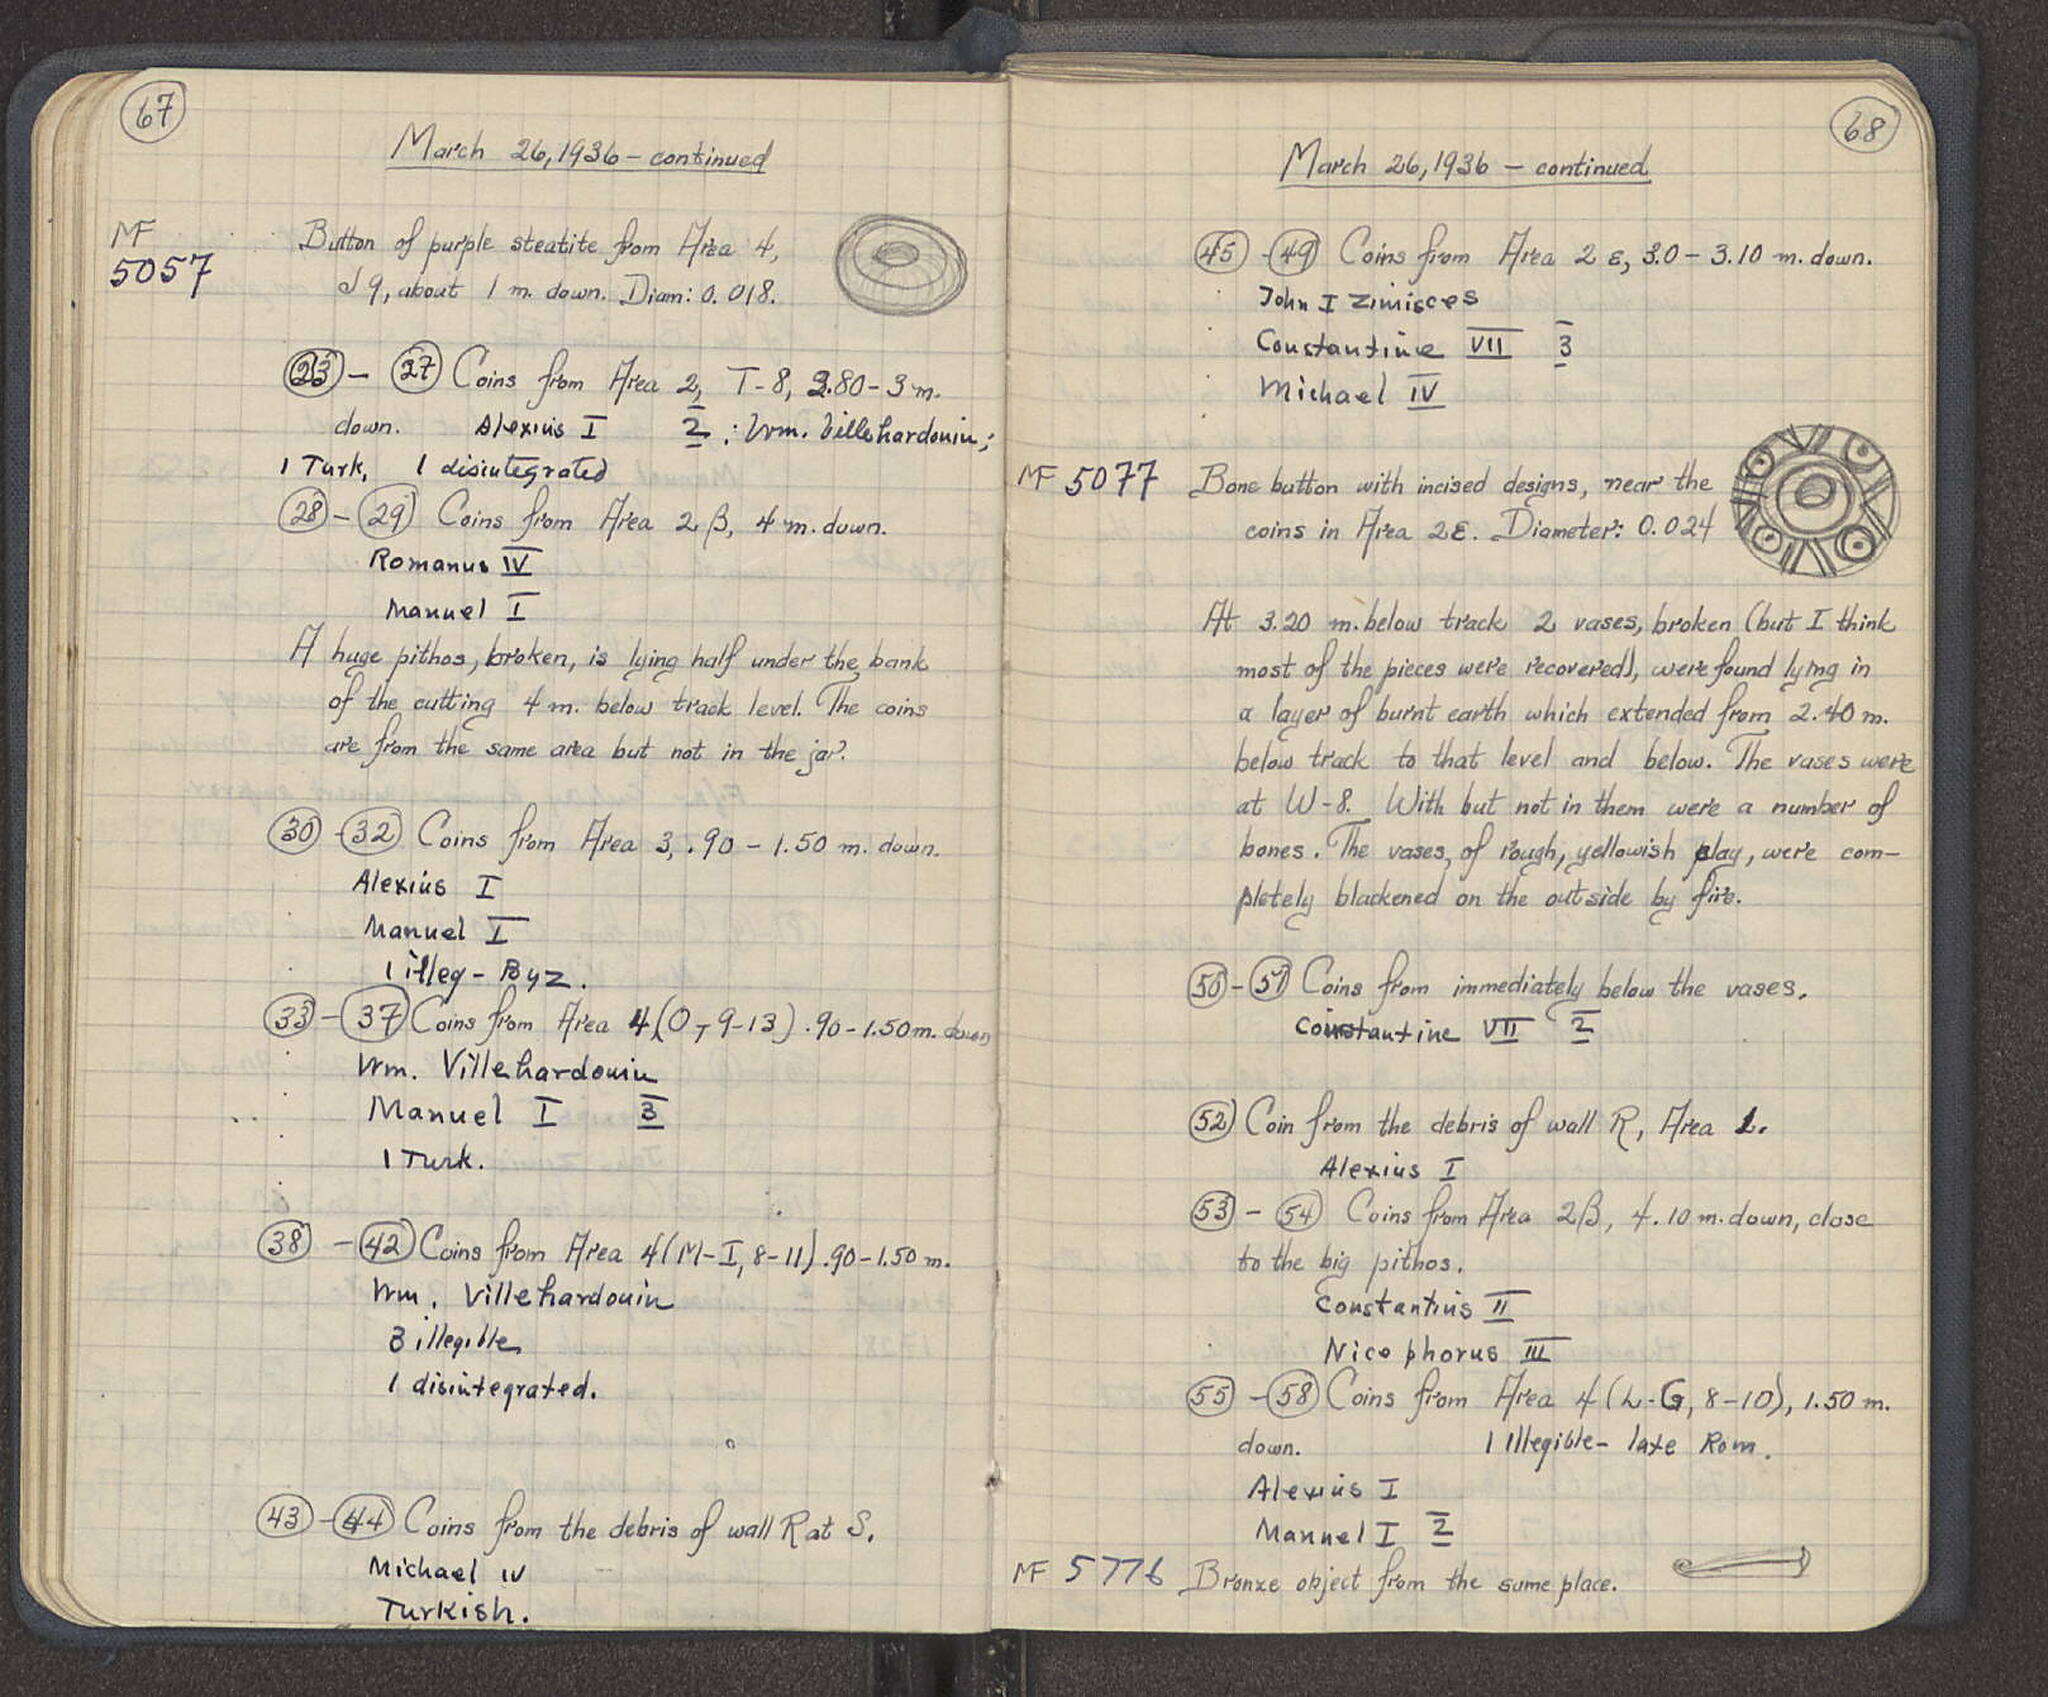 67
March 26, 1936 – continued
MF
5057
Button of purple steatite from Area 4,
J 9, about 1 m. down. Diam: 0.018.
23 – 27 Coins from Area 2, T-8, 2.80 – 3 m.
down. Alexius I 2 ; Wm. Villehardouin;
1 Turk, 1 disintegrated
28 – 29 Coins from Area 2 β, 4 m. down.
Romanus IV
Manuel I
A huge pithos, broken, is lying half under the bank
of the cutting 4 m. below track level. The coins
are from the same area but not in the jar.
30 – 32 Coins from Area 3, .90 – 1.50 m. down.
Alexius I
Manuel I
1 illeg – Byz.
33 – 37 Coins from Area 4 (O, 9-13) .90 – 1.50 m. down
Wm. Villehardouin
Manuel I 3
1 Turk.
38 – 42 Coins from Area 4 (M-I, 8-11) .90 – 1.50 m.
Wm. Villehardouin
3 illegible
1 disintegrated.
43 – 44 Coins from the debris of wall R at S.
Michael IV
Turkish.
68
March 26, 1936 – continued
45 – 49 Coins from Area 2 ε, 3.0 – 3.10 m. down.
John I Zimisces
Constantine VII 3
Michael IV
MF 5077 Bone button with incised designs, near the
coins in Area 2ε. Diameter: 0.024
At 3.20 m. below track 2 vases, broken (but I think
most of the pieces were recovered), were found lying in
a layer of burnt earth which extended from 2.40 m.
below track to that level and below. The vases were
at W-8. With but not in them were a number of
bones. The vases, of rough, yellowish clay, were com-
pletely blackened on the outside by fire.
50 – 51 Coins from immediately below the vases.
Constantine VII 2
52 Coin from the debris of wall R, Area 1.
Alexius I
53 – 54 Coins from Area 2β, 4.10 m. down, close
to the big pithos.
Constantius II
Nicephorus III
55 – 58 Coins from Area 4 (L-G, 8-10), 1.50 m.
down. 1 Illegible – late Rom.
Alexius I
Manuel I 2
MF 5776 Bronze object from the same place.